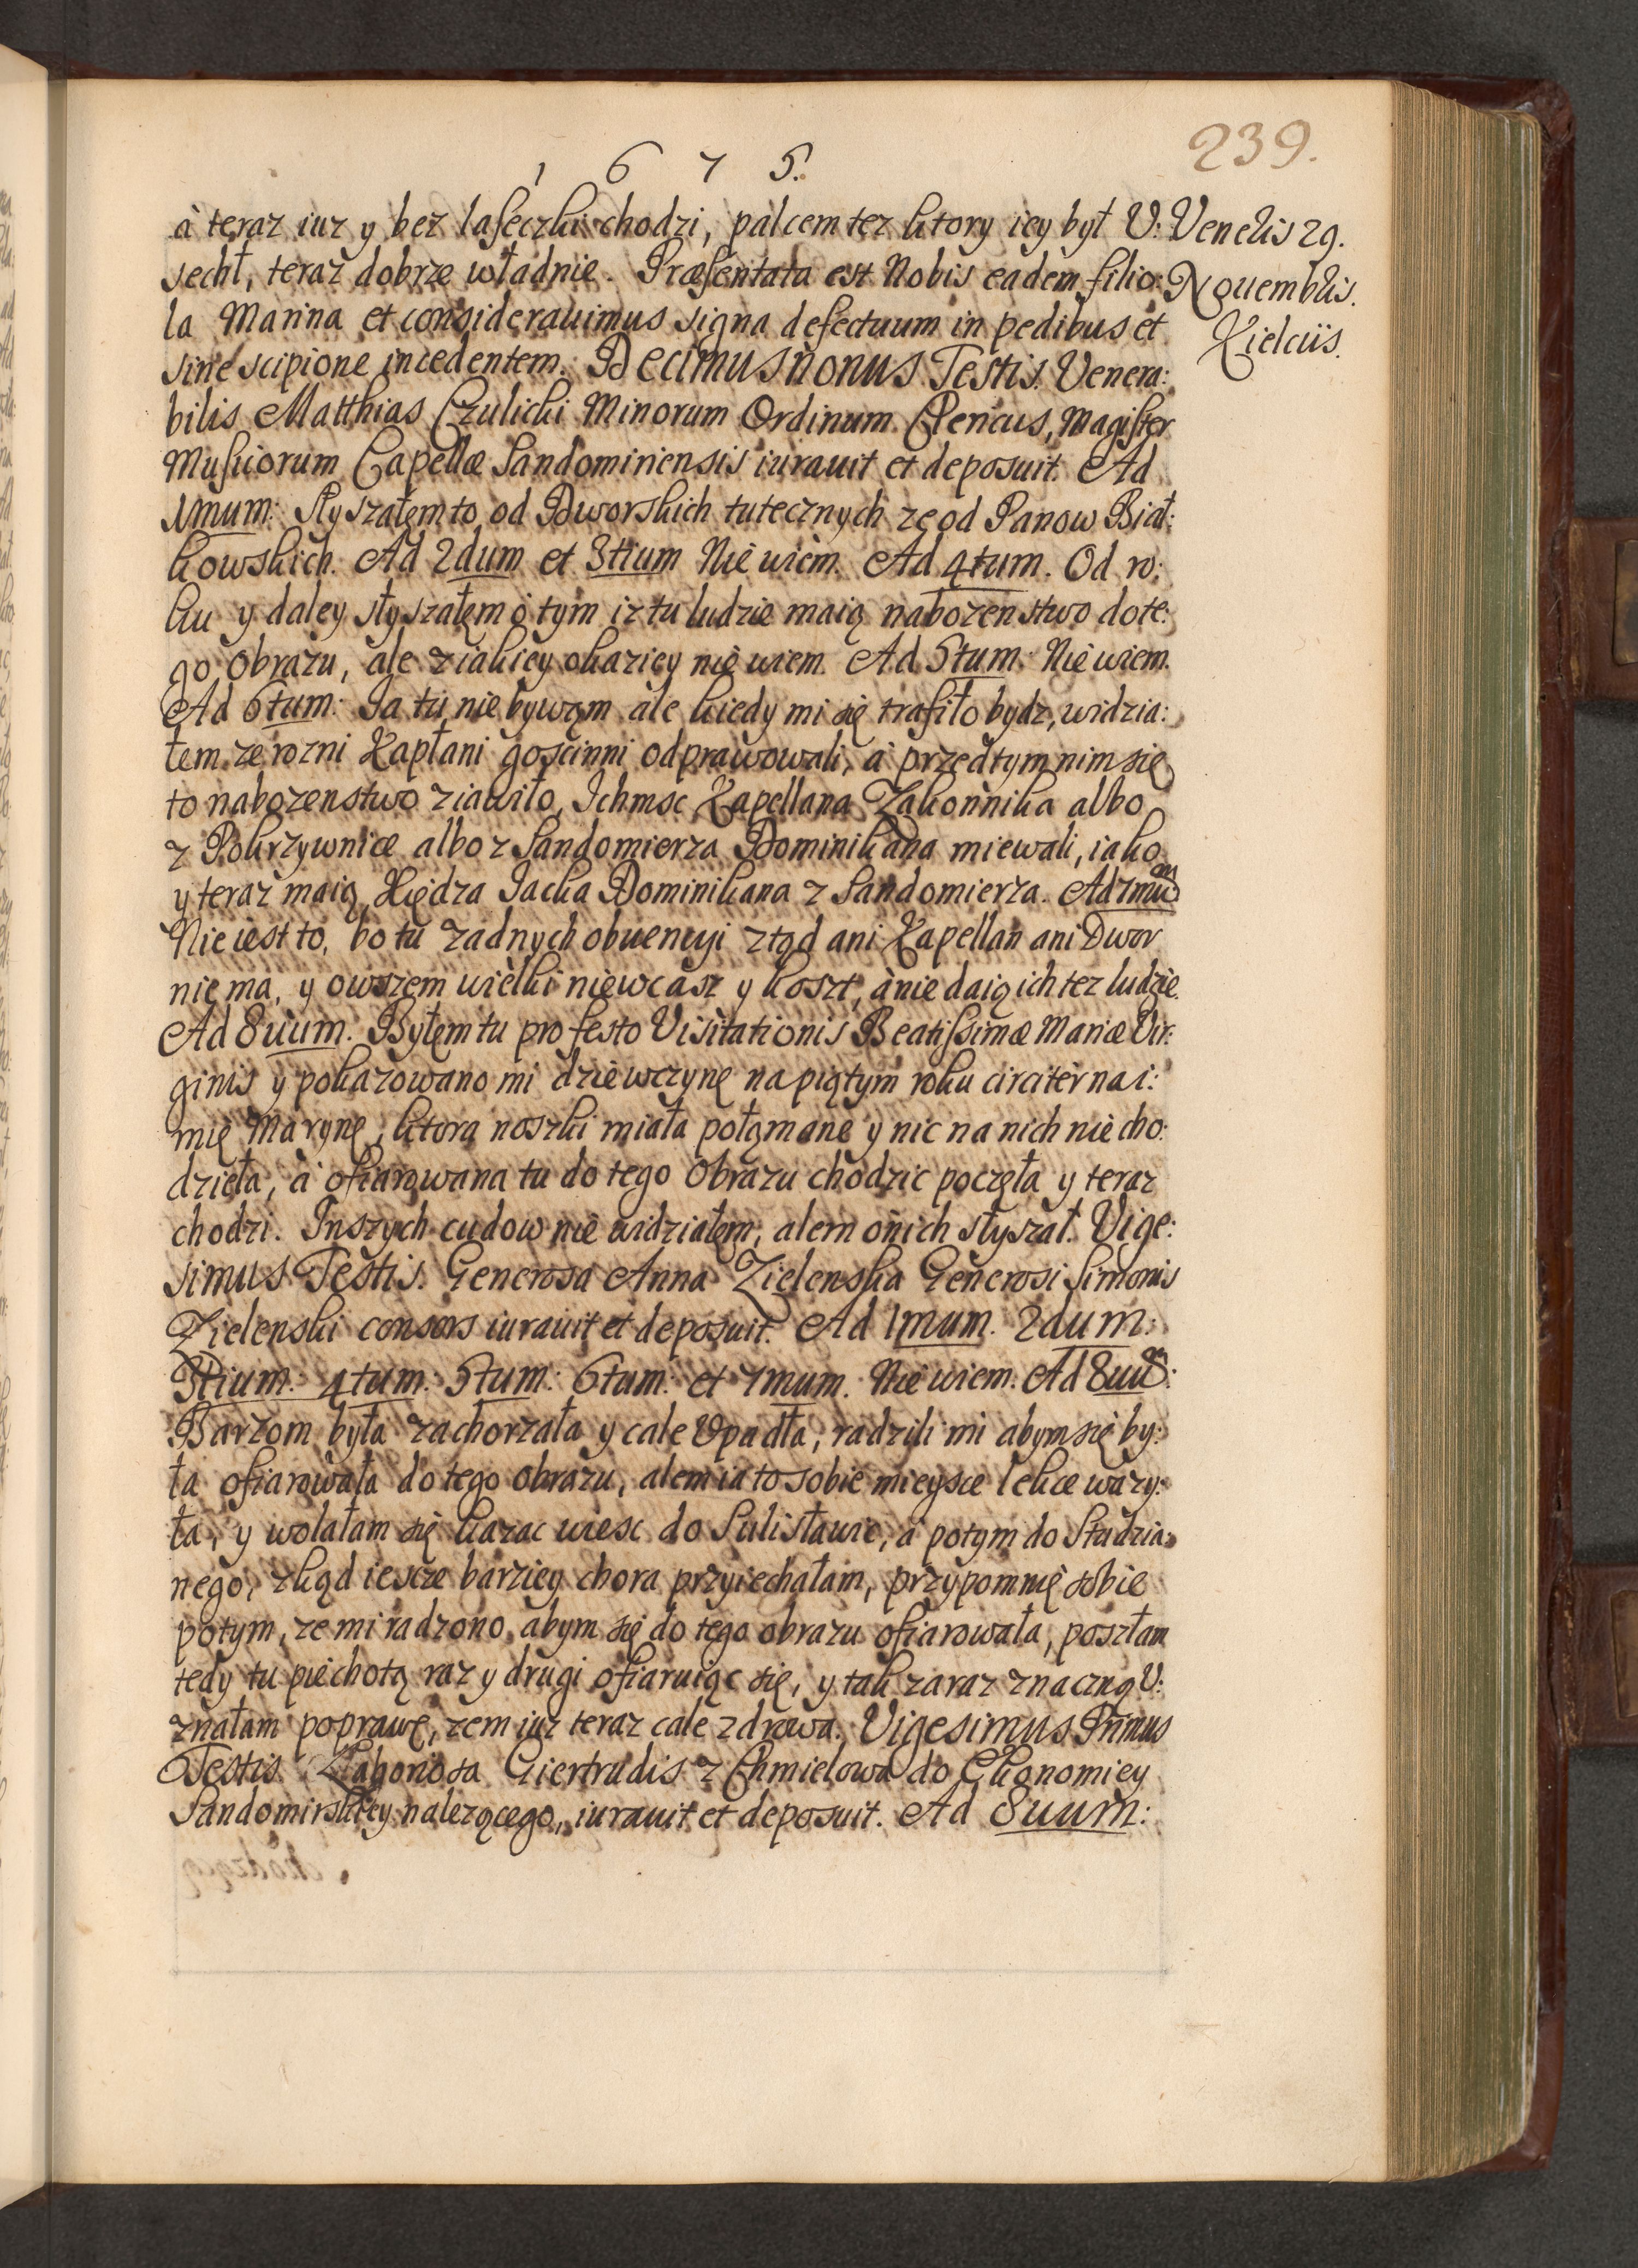 239.
1 6 7 5.
à teraz iuz y bez laseczki chodzi, palcem tez ktory iey był V:
sechł, teraz dobrze władnie. Præsentata est Nobis eadem filio:
la Marina et considerauimus signa defectuum in pedibus et
sine scipione incedentem. Decimusnonus Testis. Venera:
bilis Matthias Czulicki Minorum Ordinum Clericus, Magister
Musicorum Capellæ Sandomiriensis iurauit et deposuit. Ad
1mum: Słyszałęm to od Dworskich tutecznych ze od Panow Biał:
kowskich. Ad 2dum et 3tium Nie wiem. Ad 4tum. Od ro:
ku y daley słyszałęm o tym iz tu ludzie maią nabozenstwo do te:
go Obrazu, ale z iakiey okaziey nie wiem. Ad 5tum: Nie wiem.
Ad 6tum: Ia tu nie bywąm ale kiedy mi się trafiło bydz, widzia:
łem ze rozni Kapłani goscinni odprawowali, à przedtym nim się
to nabozenstwo ziawiło, Ichmsc Kapellana Zakonnika albo
z Pokrzywnice albo z Sandomierza Dominikana miewali, iako
y teraz maią Xiędza Iacka Dominikana z Sandomierza. Ad 7mum
Nie iest to, bo tu zadnych obuencyi ztąd ani Kapellan ani Dwor
nie ma, y owszem wielki niewcasz y koszt, à nie daią ich tez ludzie.
Ad 8uum. Byłęm tu pro festo Visitationis Beatissimæ Mariæ Vir:
ginis y pokazowano mi dziewczynę na piątym roku circiter na i:
mię Marynę, ktora noszki miała połąmane y nic na nich nie cho:
dzieła, à ofiarowana tu do tego Obrazu chodzic poczęła y teraz
chodzi. Inszych cudow nie widziałęm, alem o nich słyszał. Vige:
simus Testis. Generosa Anna Zielenska Generosi Simonis
Zielenski consors iurauit et deposuit. Ad 1mum. 2dum:
3tium: 4tum: 5tum: 6tum: et 7mum. Nie wiem. Ad 8uum:
Barzom była zachorzała y cale Vpadła, radzili mi abym się by:
ła ofiarowała do tego obrazu, alem ia to sobie mieysce lekce wazy:
ła, y wolałam się kazac wiesc do Sulisławic, à potym do Studzia:
nego, zkąd iescze barziey chora przyiechałam, przypomnię sobie
potym, ze mi radzono, abym się do tego obrazu ofiarowała, poszłam
tedy tu piechotą raz y drugi ofiaruiąc się, y tak zaraz znaczną V:
znałam poprawę, zem iuz teraz cale zdrowa. Vigesimus Primus
Testis. Giertrudis z Chmielowa do Ekonomiey
Sandomirskiey nalezącego, iurauit et deposuit. Ad 8uum:
Veneris 29.
Nouembris.
Kielciis.